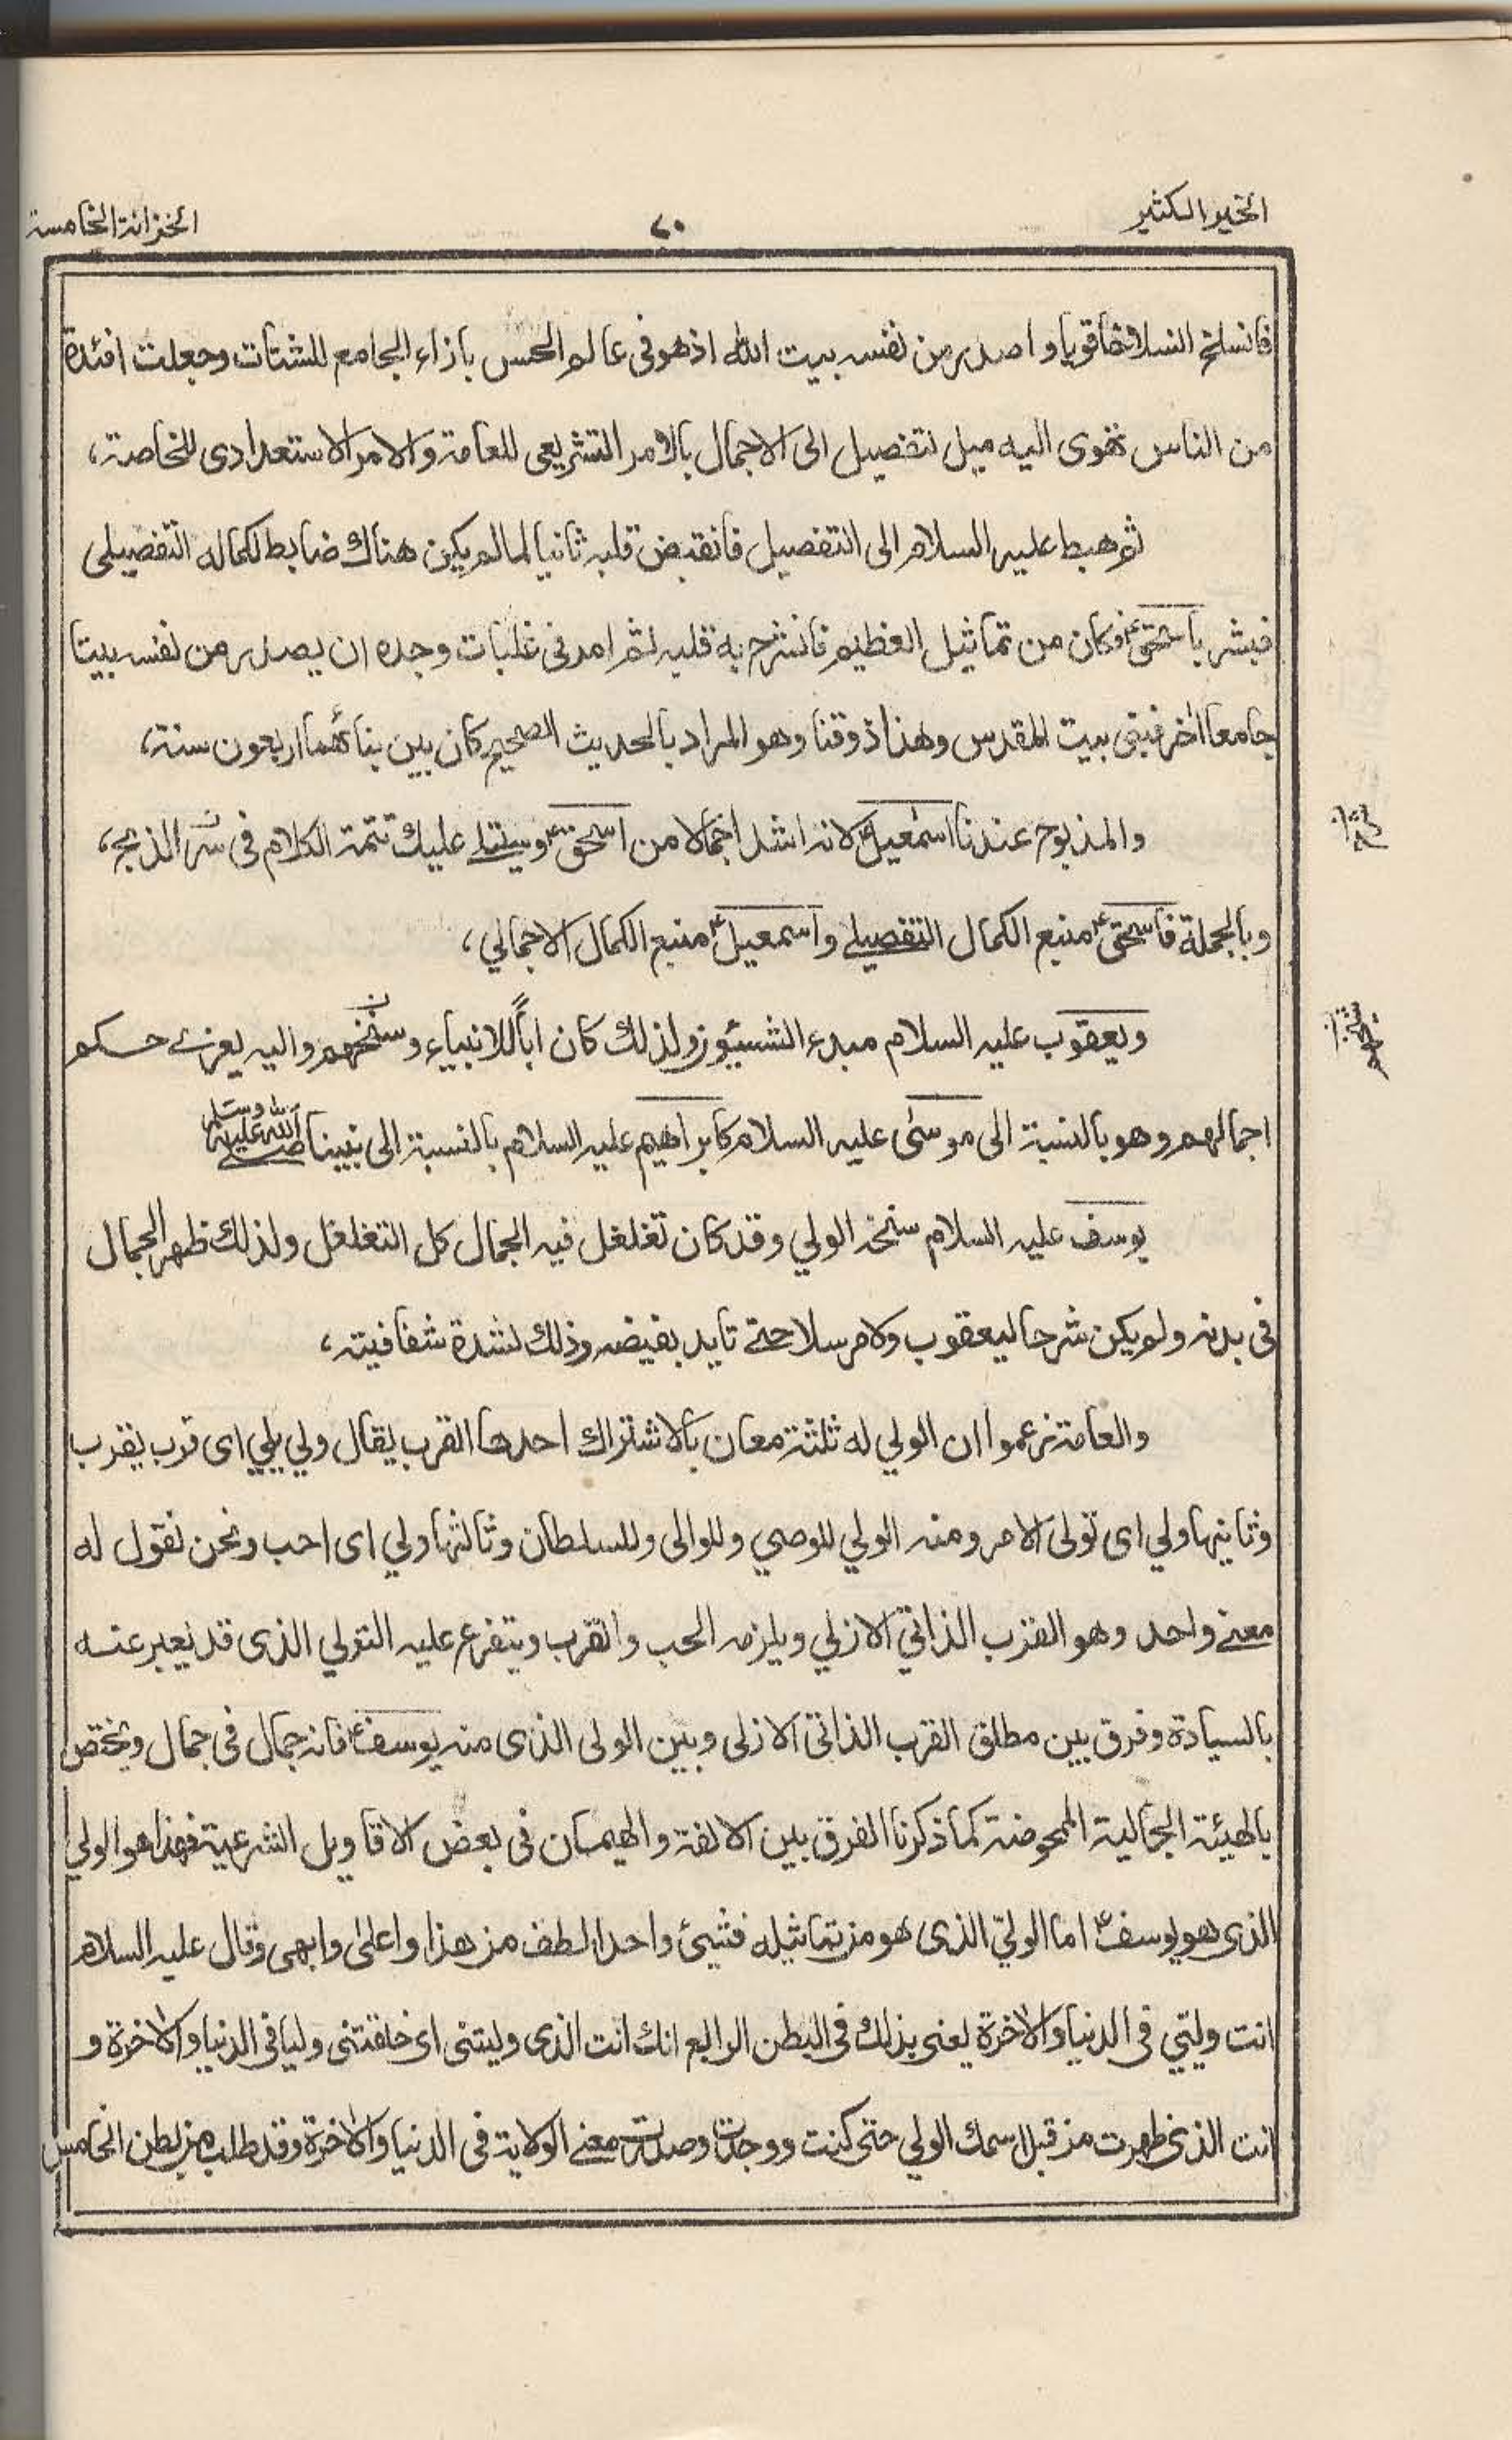 الخير الكثير
٧٠
الخزانة الخامسة
فانسلخ انسلاخا قويا واصدر من نفسه بيت الله اذ هو فى عالم الحس بازاء الجامع للشتات وجعلت افئدة
من الناس تهوى اليه ميل تفصيل الى الاجمال بالامر التشريعى للعامة والامر الاستعدادى للخاصة،
ثم هبط عليه السلام الى التفصيل فانقبض قلبه ثانيا لما لم يكن هناك ضابط لكماله التفصيلى
فبشر باسحق؏ فكان من تماثيل العظيم فانشرح به قلبه ثم امد فى غلبات وجده ان يصدر من نفسه بيتا
جامعا اخر فبنى بيت المقدس وهذا ذوقنا وهو المراد بالحديث الصحيح كان بين بنائهما اربعون سنة،
والمذبوح عندنا اسمٰعيل؏ لانه اشد اجمالا من اسحق؏ وسيتلى عليك تتمة الكلام فى سر الذبح،
وبالجملة فاسحق؏ منبع الكمال التفصيلے واسمعيل؏ منبع الكمال الاجمالي،
ويعقوب عليه السلام مبدء الشيئو ولذلك كان اباً للانبياء وسنخهم واليه يعزے حكم
اجمالهم وهو بالنسبة الى موسىٰ عليه السلام كابراهيم عليه السلام بالنسبة الى نبينا صلے الله عليه وسلم
يوسف عليه السلام سنخه الولي وقد كان تغلغل فيه الجمال كل التغلغل ولذلك ظهر الجمال
فى بدنه ولم يكن شرحا ليعقوب ولا مرسلا حتے تايد بفيضه وذلك لشدة شفافيته،
والعامة زعموا ان الولي له ثلثة معان بالاشتراك احدها القرب يقال ولي يلي اى قرب يقرب
وثانيها ولي اى تولى الامر ومنه الولي للوصي وللوالى وللسلطان وثالثها ولي اى احب ونحن نقول له
معنے واحد وهو القرب الذاتي الازلي ويلزمه الحب والقرب ويتفرع عليه التولي الذى قد يعبر عنه
بالسيادة وفرق بين مطلق القرب الذاتى الازلى وبين الولى الذى منه يوسف؏ فانه جمال فى جمال ويختص
بالهيئة الجمالية المحوضة كما ذكرنا الفرق بين الالفة والهيمان فى بعض الاقاويل الشرعية فهذا هو الولي
الذى هو يوسف؏ اما الوليّ الذى هو من تماثيله فشيئ واحد الطف من هذا واعلىٰ وابهى وقال عليه السلام
انت وليّي فى الدنيا والاخرة يعنى بذلك فى البطن الرابع انك انت الذى وليتنى اى خلقتنى وليا فى الدنيا والاخرة و
انت الذى ظهرت من قبل اسمك الولي حتى كنت ووجدت وصدرت معنے الولاية فى الدنيا والاخرة وقد طلب من بطن الخامس